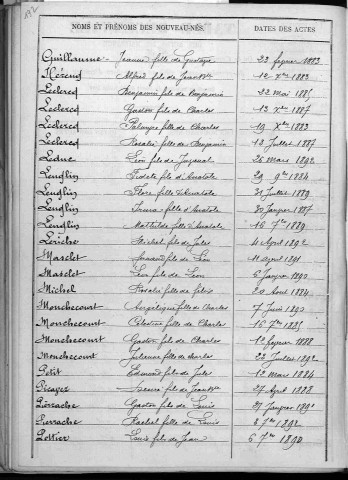 192
NOMS ET PRÉNOMS DES NOUVEAU-NÉS. DATES DES ACTES
Guillaume - Jeanne fille de Gustave 23 février 1883
Alfred fils de Jean Bte 12 Xbre 1883
Leclercq Benjamin fils de Benjamin 22 mai 1885
Leclercq Gaston fils de Charles 13 Xbre 1887
Leclercq Palmyre fille de Charles 19 Xbre 1883
Leclercq Rosalie fille de Benjamin 12 Juillet 1887
Leduc Léon fils de 26 mars 1892
Lenglin Fidèle fils d'Anatole 29 9bre 1884
Lenglin Flore fille d'Anatole 31 Juillet 1889
Lenglin fille d'Anatole 30 Janvier 1887
Lenglin Mathilde fille d'Anatole 16 7bre 1889
Leriche Michel fils de Jules 4 Avril 1892
Masclet Fernand fils de Léon 11 avril 1891
Masclet Léon fils de Léon 6 Janvier 1890
Michel Rosalie fille de Félix 20 Aout 1884
Monchecourt Angélique fille de Charles 7 Juin 1890
Monchecourt Célestine fille de Charles 16 7bre 1885
Monchecourt Gaston fils de Charles 12 février 1888
Monchecourt Julienne fille de Charles 22 Juillet 1892
Petit Edmond fils de Jules 12 Mars 1884
fils de Jean Bte 27 Avril 1888
Gaston fils de Louis 27 Janvier 1891
Rachel fille de Louis 8 7bre 1892
Pottier Louis fils de Jean 6 7bre 1890